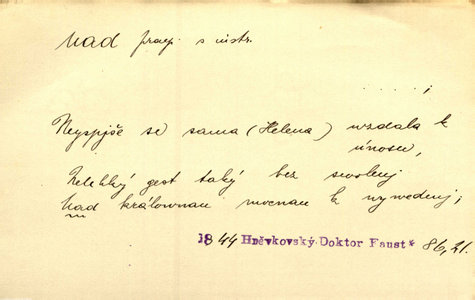 nad praep. s instr.
. . . . . ;
Neyspjše se sama (Helena) wzdala k
únosu,
Zelehký gest taký bez swolenj
nad králownau mocnau k wywedenj;
1844 Hněvkovský Doktor Faust* 86, 21.